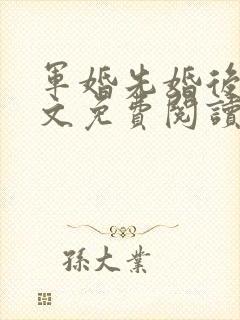 軍婚先婚後
文免費閱讀
孫大業